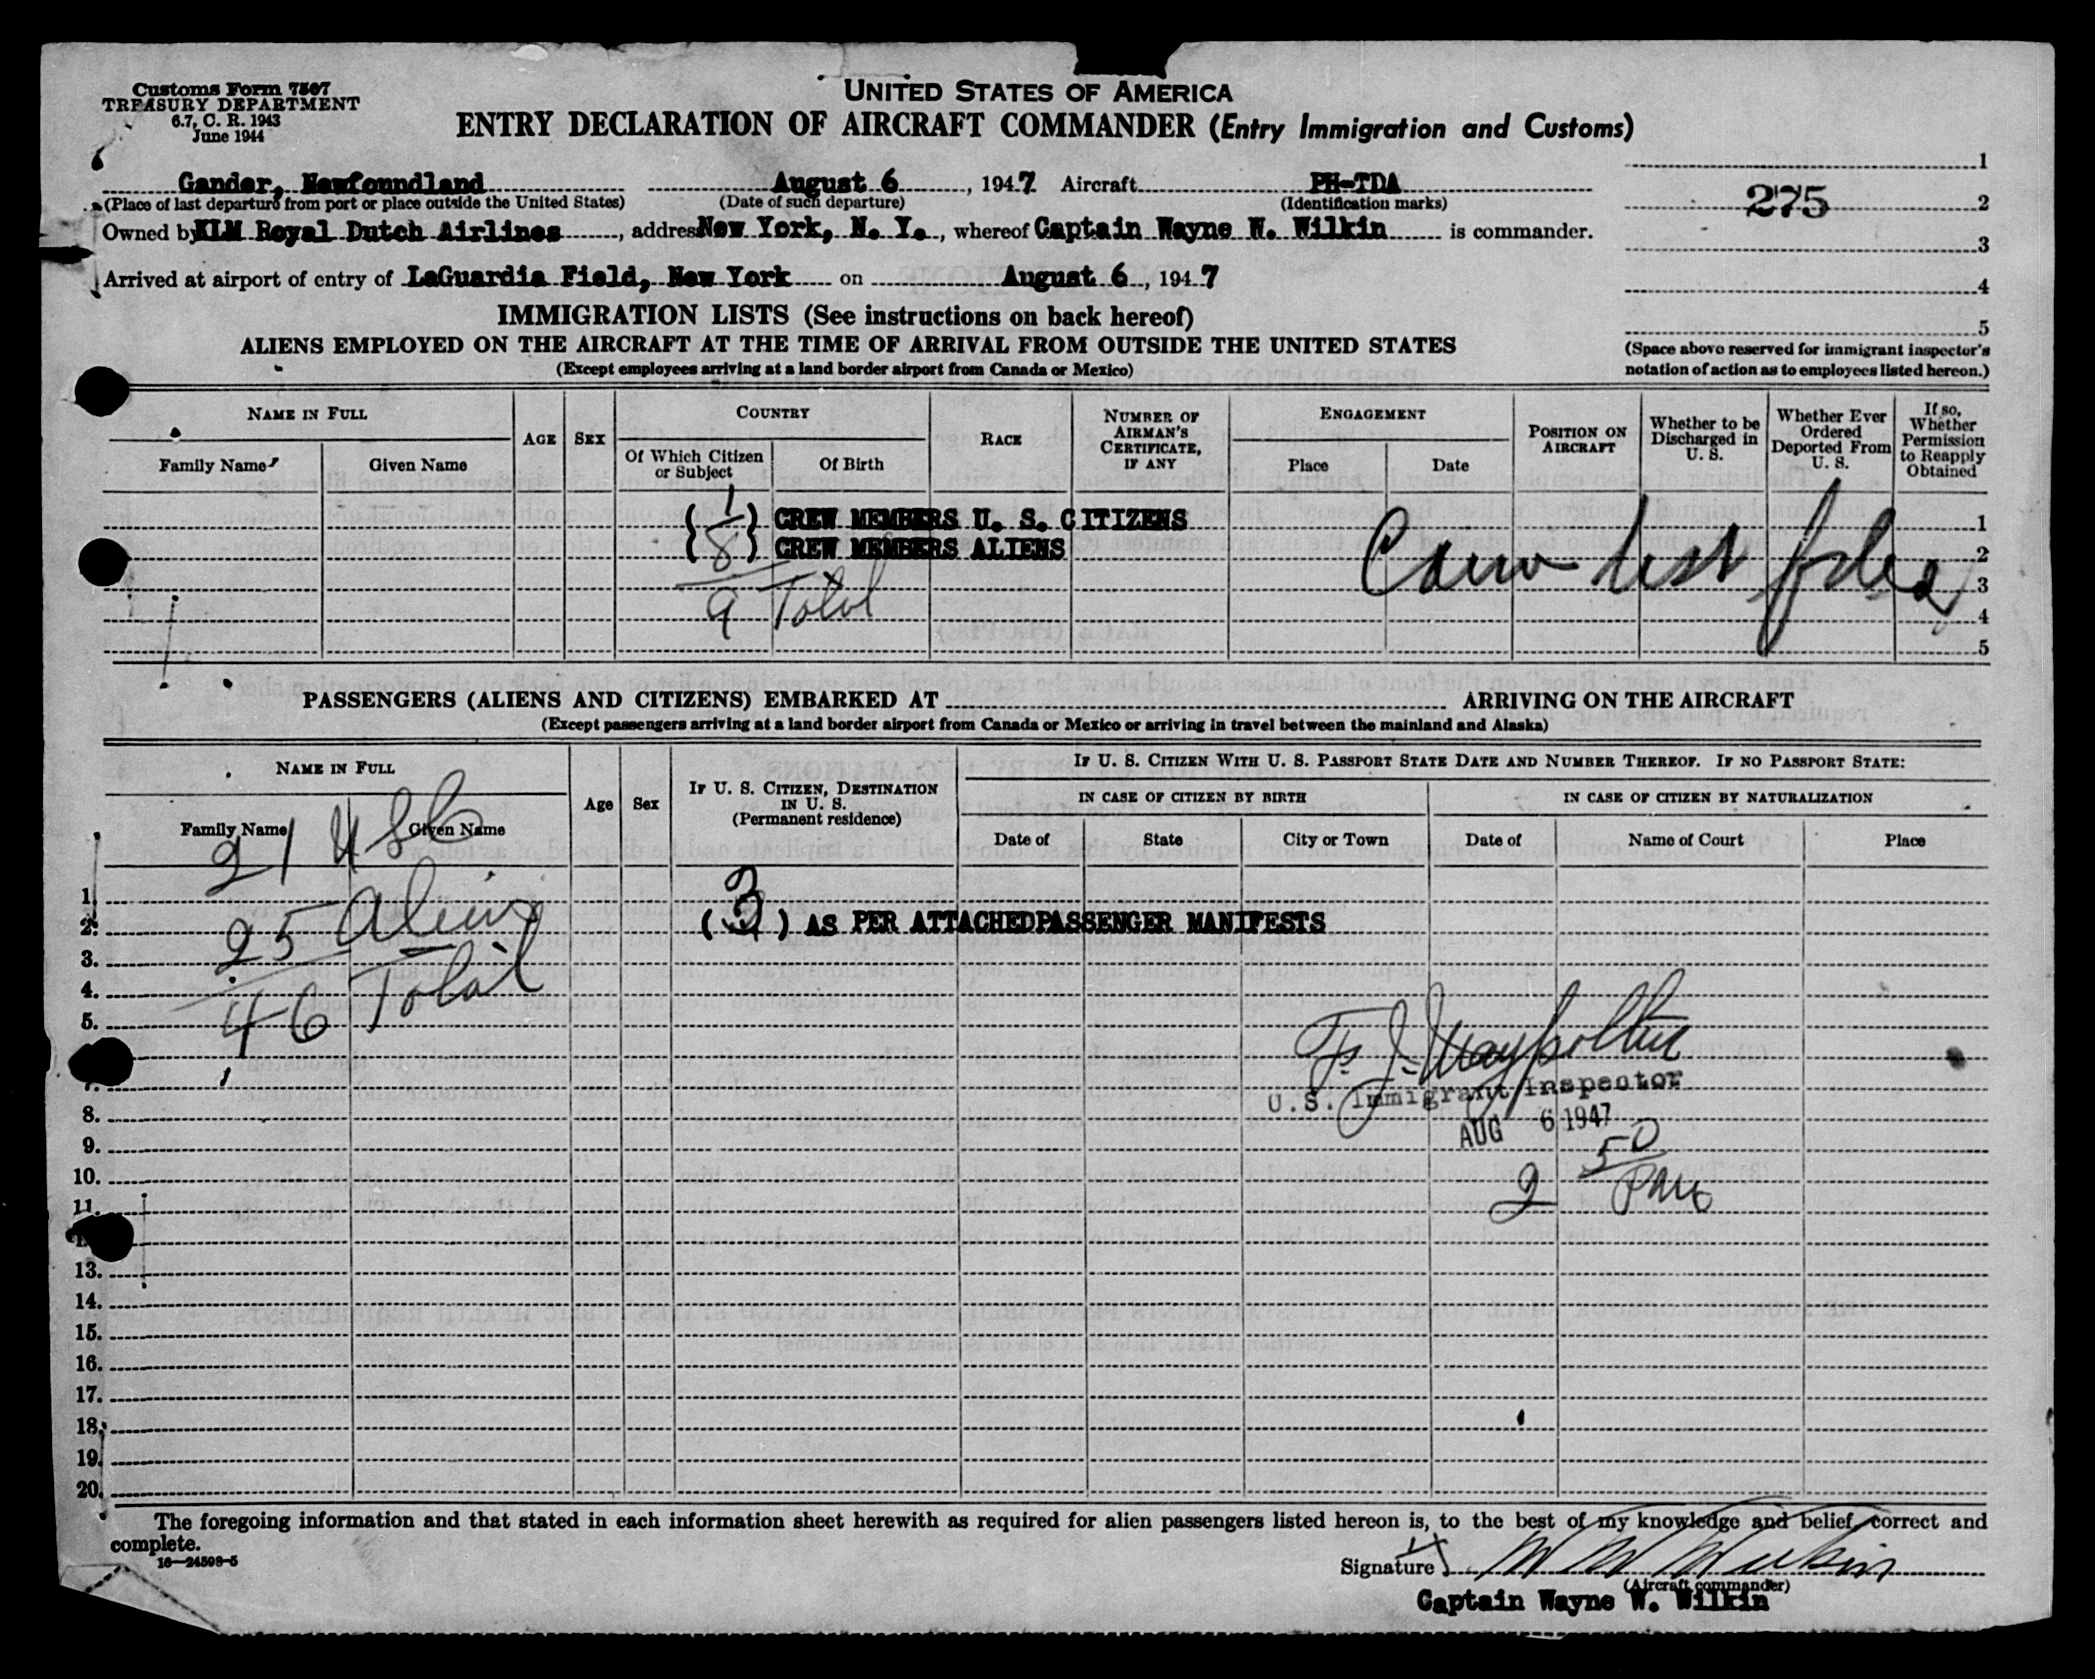 Customs Form 7507
TREASURY DEPARTMENT
6.7, C. R. 1943
June 1944
UNITED STATES OF AMERICA
ENTRY DECLARATION OF AIRCRAFT COMMANDER (Entry Immigration and Customs)
Gander, Newfoundland August 6, 1947 Aircraft PH-TDA
(Place of last departure from port or place outside the United States) (Date of such departure) (Identification marks)
Owned by KLM Royal Dutch Airlines, address New York, N. Y., whereof Captain Wayne W. Wilkin is commander.
Arrived at airport of entry of LaGuardia Field, New York on August 6, 1947
1
275 2
3
4
5
(Space above reserved for immigrant inspector's
notation of action as to employees listed hereon.)
IMMIGRATION LISTS (See instructions on back hereof)
ALIENS EMPLOYED ON THE AIRCRAFT AT THE TIME OF ARRIVAL FROM OUTSIDE THE UNITED STATES
(Except employees arriving at a land border airport from Canada or Mexico)
NAME IN FULL
Family Name Given Name
AGE SEX
COUNTRY
Of Which Citizen or Subject Of Birth
RACE
NUMBER OF AIRMAN'S CERTIFICATE, IF ANY
ENGAGEMENT
Place Date
POSITION ON AIRCRAFT
Whether to be Discharged in U. S.
Whether Ever Ordered Deported From U. S.
If so, Whether Permission to Reapply Obtained
(1) CREW MEMBERS U. S. CITIZENS 1
(8) CREW MEMBERS ALIENS 2
3
9 Total 4
5
PASSENGERS (ALIENS AND CITIZENS) EMBARKED AT ARRIVING ON THE AIRCRAFT
(Except passengers arriving at a land border airport from Canada or Mexico or arriving in travel between the mainland and Alaska)
NAME IN FULL
Family Name Given Name
Age Sex
IF U. S. CITIZEN, DESTINATION IN U. S. (Permanent residence)
IF U. S. CITIZEN WITH U. S. PASSPORT STATE DATE AND NUMBER THEREOF. IF NO PASSPORT STATE:
IN CASE OF CITIZEN BY BIRTH IN CASE OF CITIZEN BY NATURALIZATION
Date of State City or Town Date of Name of Court Place
21 USC
1.
25 Aliens
2. (3) AS PER ATTACHED PASSENGER MANIFESTS
3.
46 Total
4.
5.
7.
U.S. Immigrant Inspector
8.
AUG 6 1947
9.
2 50
10.
11.
13.
14.
15.
16.
17.
18.
19.
20.
The foregoing information and that stated in each information sheet herewith as required for alien passengers listed hereon is, to the best of my knowledge and belief, correct and
complete.
16—24508-5
Signature W W Wilkin
(Aircraft commander)
Captain Wayne W. Wilkin